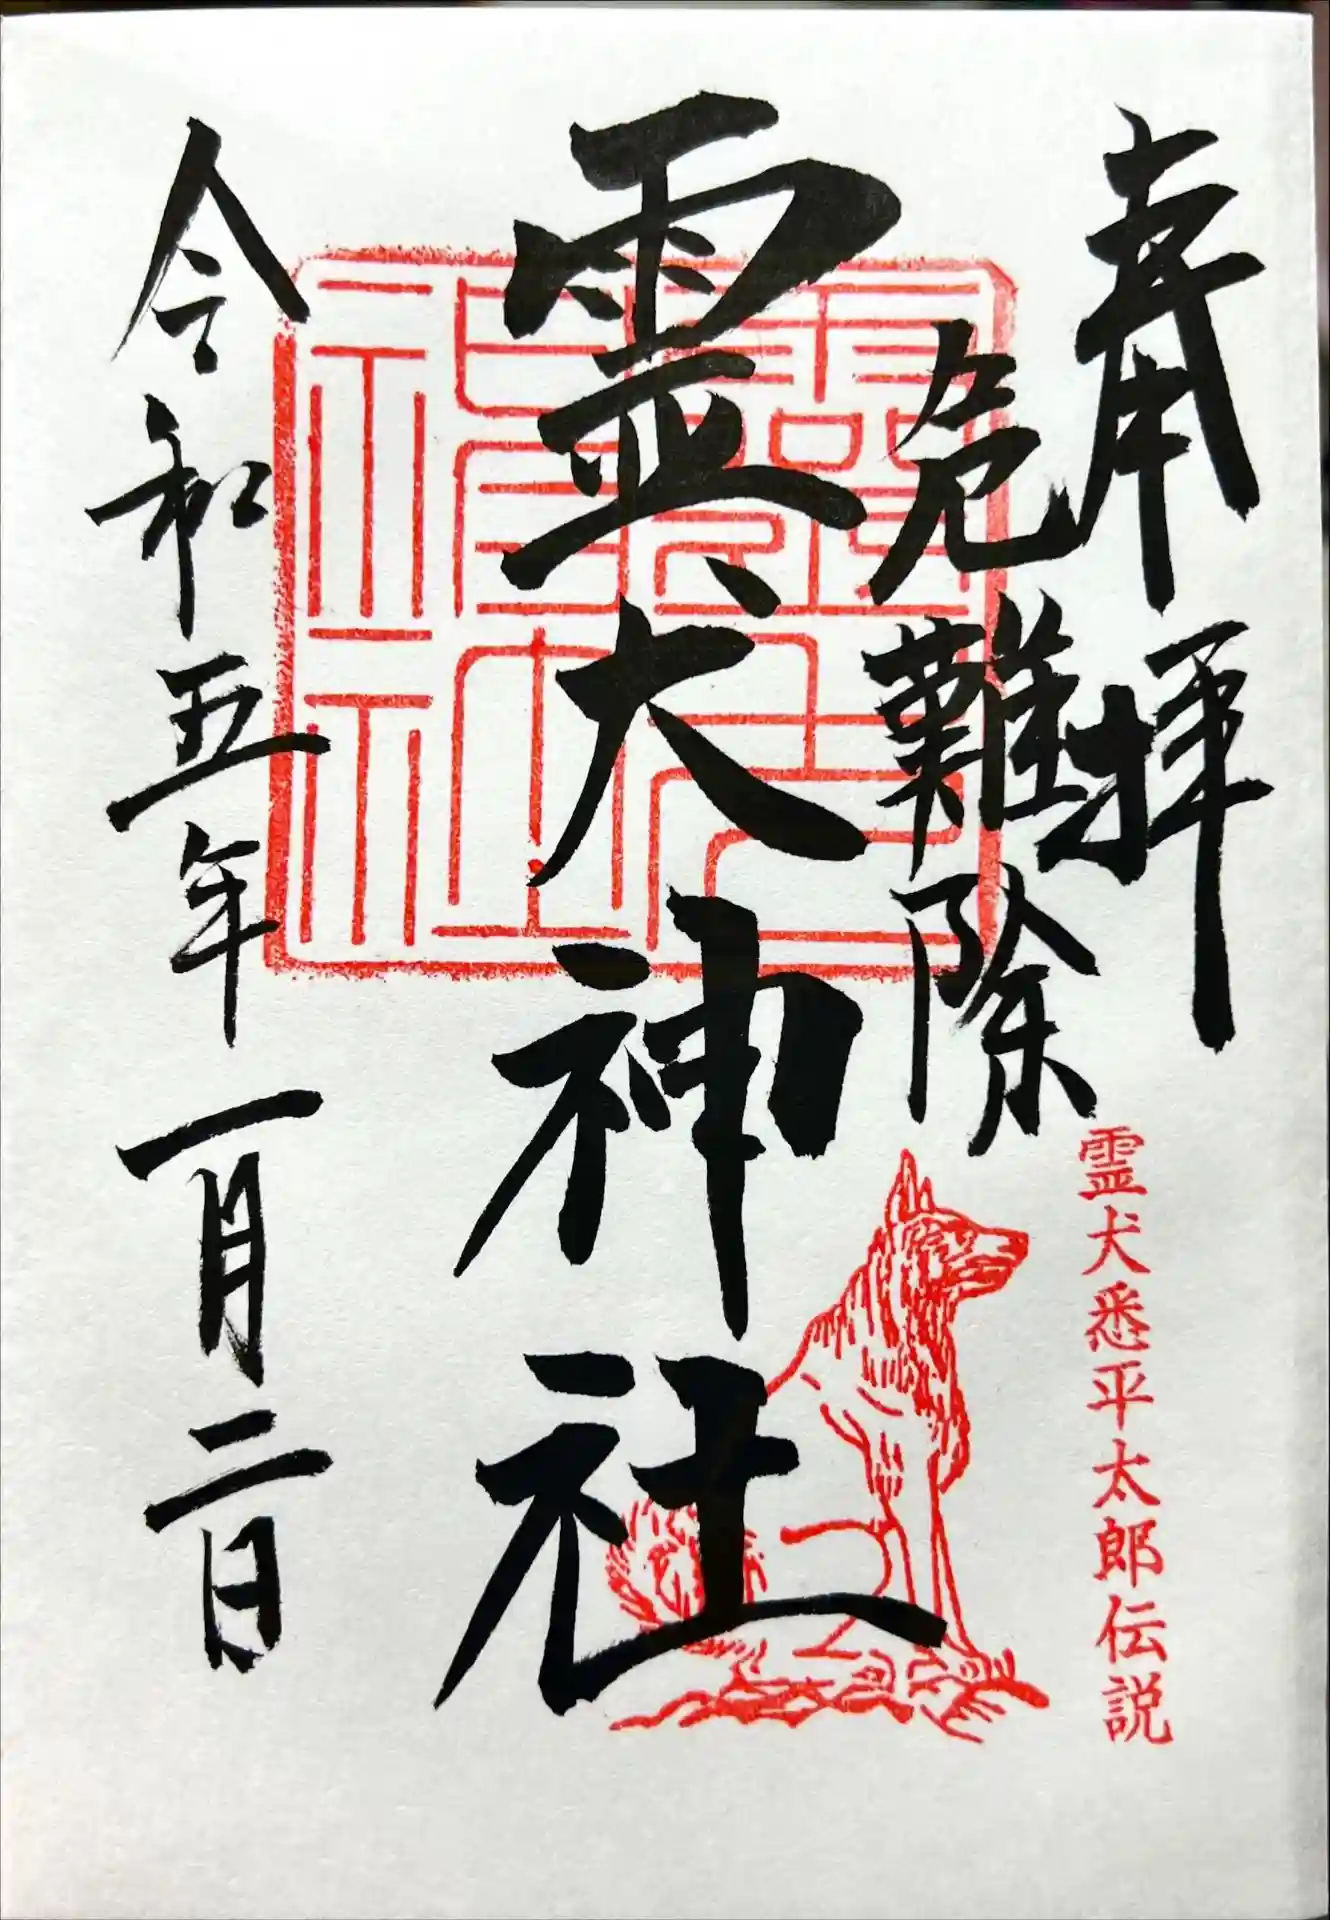 奉拝
危難除
霊犬神社
霊犬神社
霊犬悉平太郎伝説
令和五年一月二日